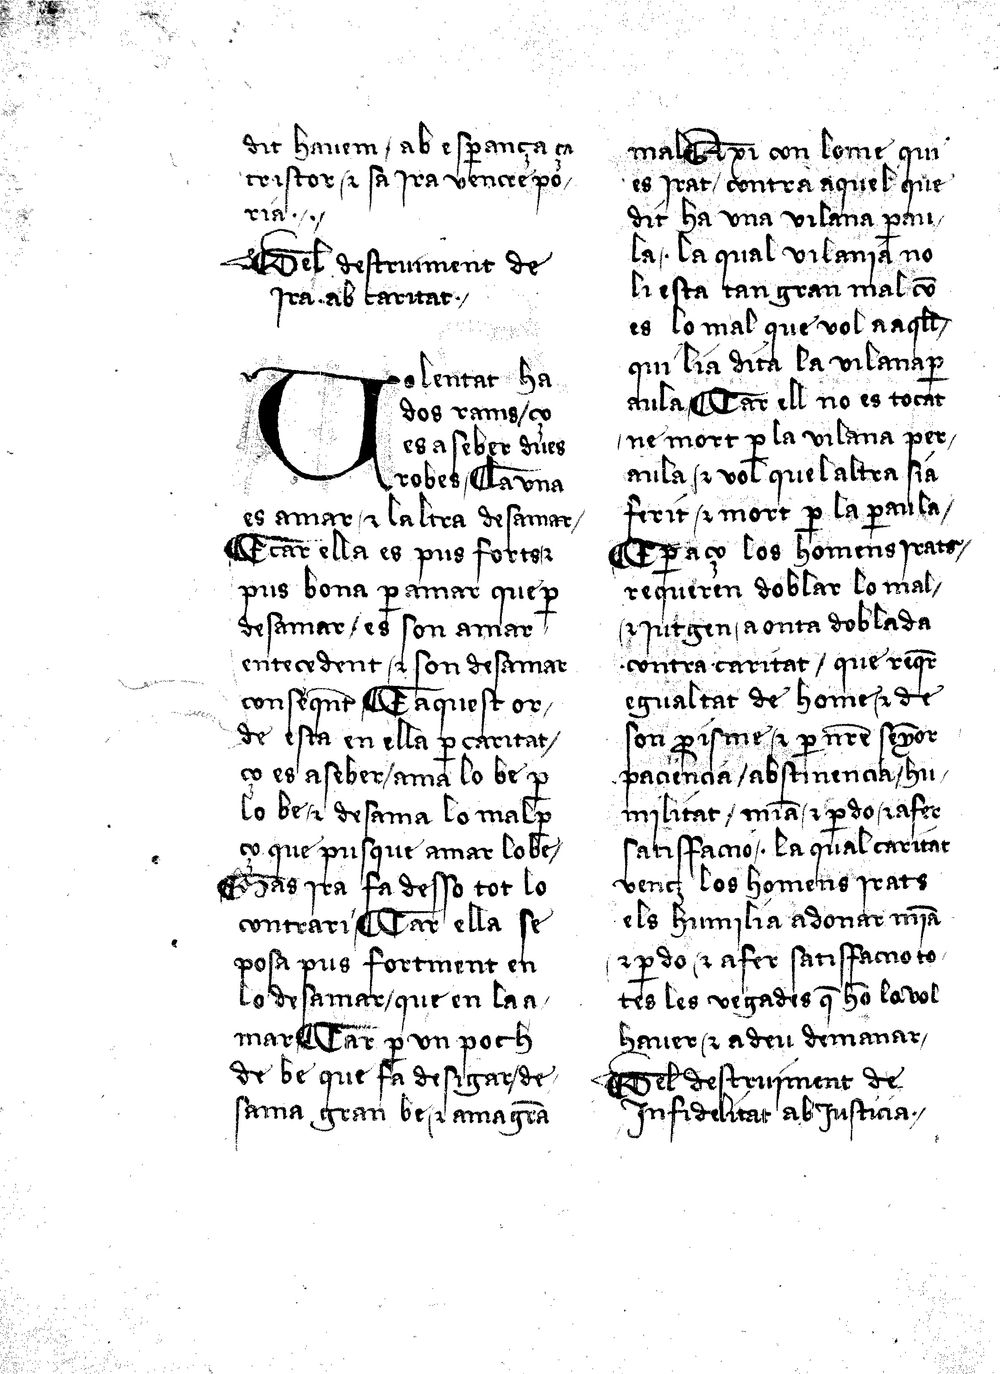 dit hauem / ab esꝑança ça
tristor / ⁊ sa ira vencre po /
ria . . /
¶ Del destruiment de
Ira . ab caritat . /
Uolentat ha
dos rams / ço
es a seber dues
robes / ¶ La vna
es amar / ⁊ laltra desamar /
¶ E car ella es pus forts ⁊
pus bona ꝑ amar que ꝑ
desamar / es son amar
entecedent / ⁊ son desamar
conseqnt̄ ¶ E aquest or /
de esta en ella ꝑ caritat /
ço es a seber / ama lo be ꝑ
lo be / ⁊ desama lo mal ꝑ
ço que pusque amar lo be /
¶ Mas ira fa desso tot lo
contrari / ¶ Car ella se
posa pus fortment en
lo desamar / que en la a /
mar ¶ Car ꝑ vn poch
de be que fa desigar / de /
sama gran be / ⁊ ama grā
mal ¶ E xi con lome qui
es irat / contra aquel que
dit ha vna vilana ꝑau /
la / . la qual vilania no
li esta tan gran mal cō
es lo mal que vol a aqll̄ /
qui lia dita la vilana ꝑ
aula / ¶ Car ell no es tocat
/ ne mort ꝑ la vilana per /
aula / ⁊ vol quel altra sia
ferit / ⁊ mort ꝑ la ꝑaula /
¶ E ꝑ aço los homens irats /
requeren doblar lo mal /
/ ⁊ iutgen / a onta doblada
contra caritat / que reqr̄
egualtat de home / ⁊ de
son ꝓisme / ⁊ ꝑ nr̄e seyor
paciencia / abstinencia / hu /
militat / mīa / ⁊ ꝑdo / ⁊ a fer
satisffacio / . La qual caritat
venç los homens irats
els humilia a donar mīa
/ ⁊ ꝑdo / ⁊ a fer satisffacio to /
tes les vegades q̄ hō la vol
hauer / ⁊ a deu demanar /
¶ Del destruiment de
Infidelitat ab Iusticia . /